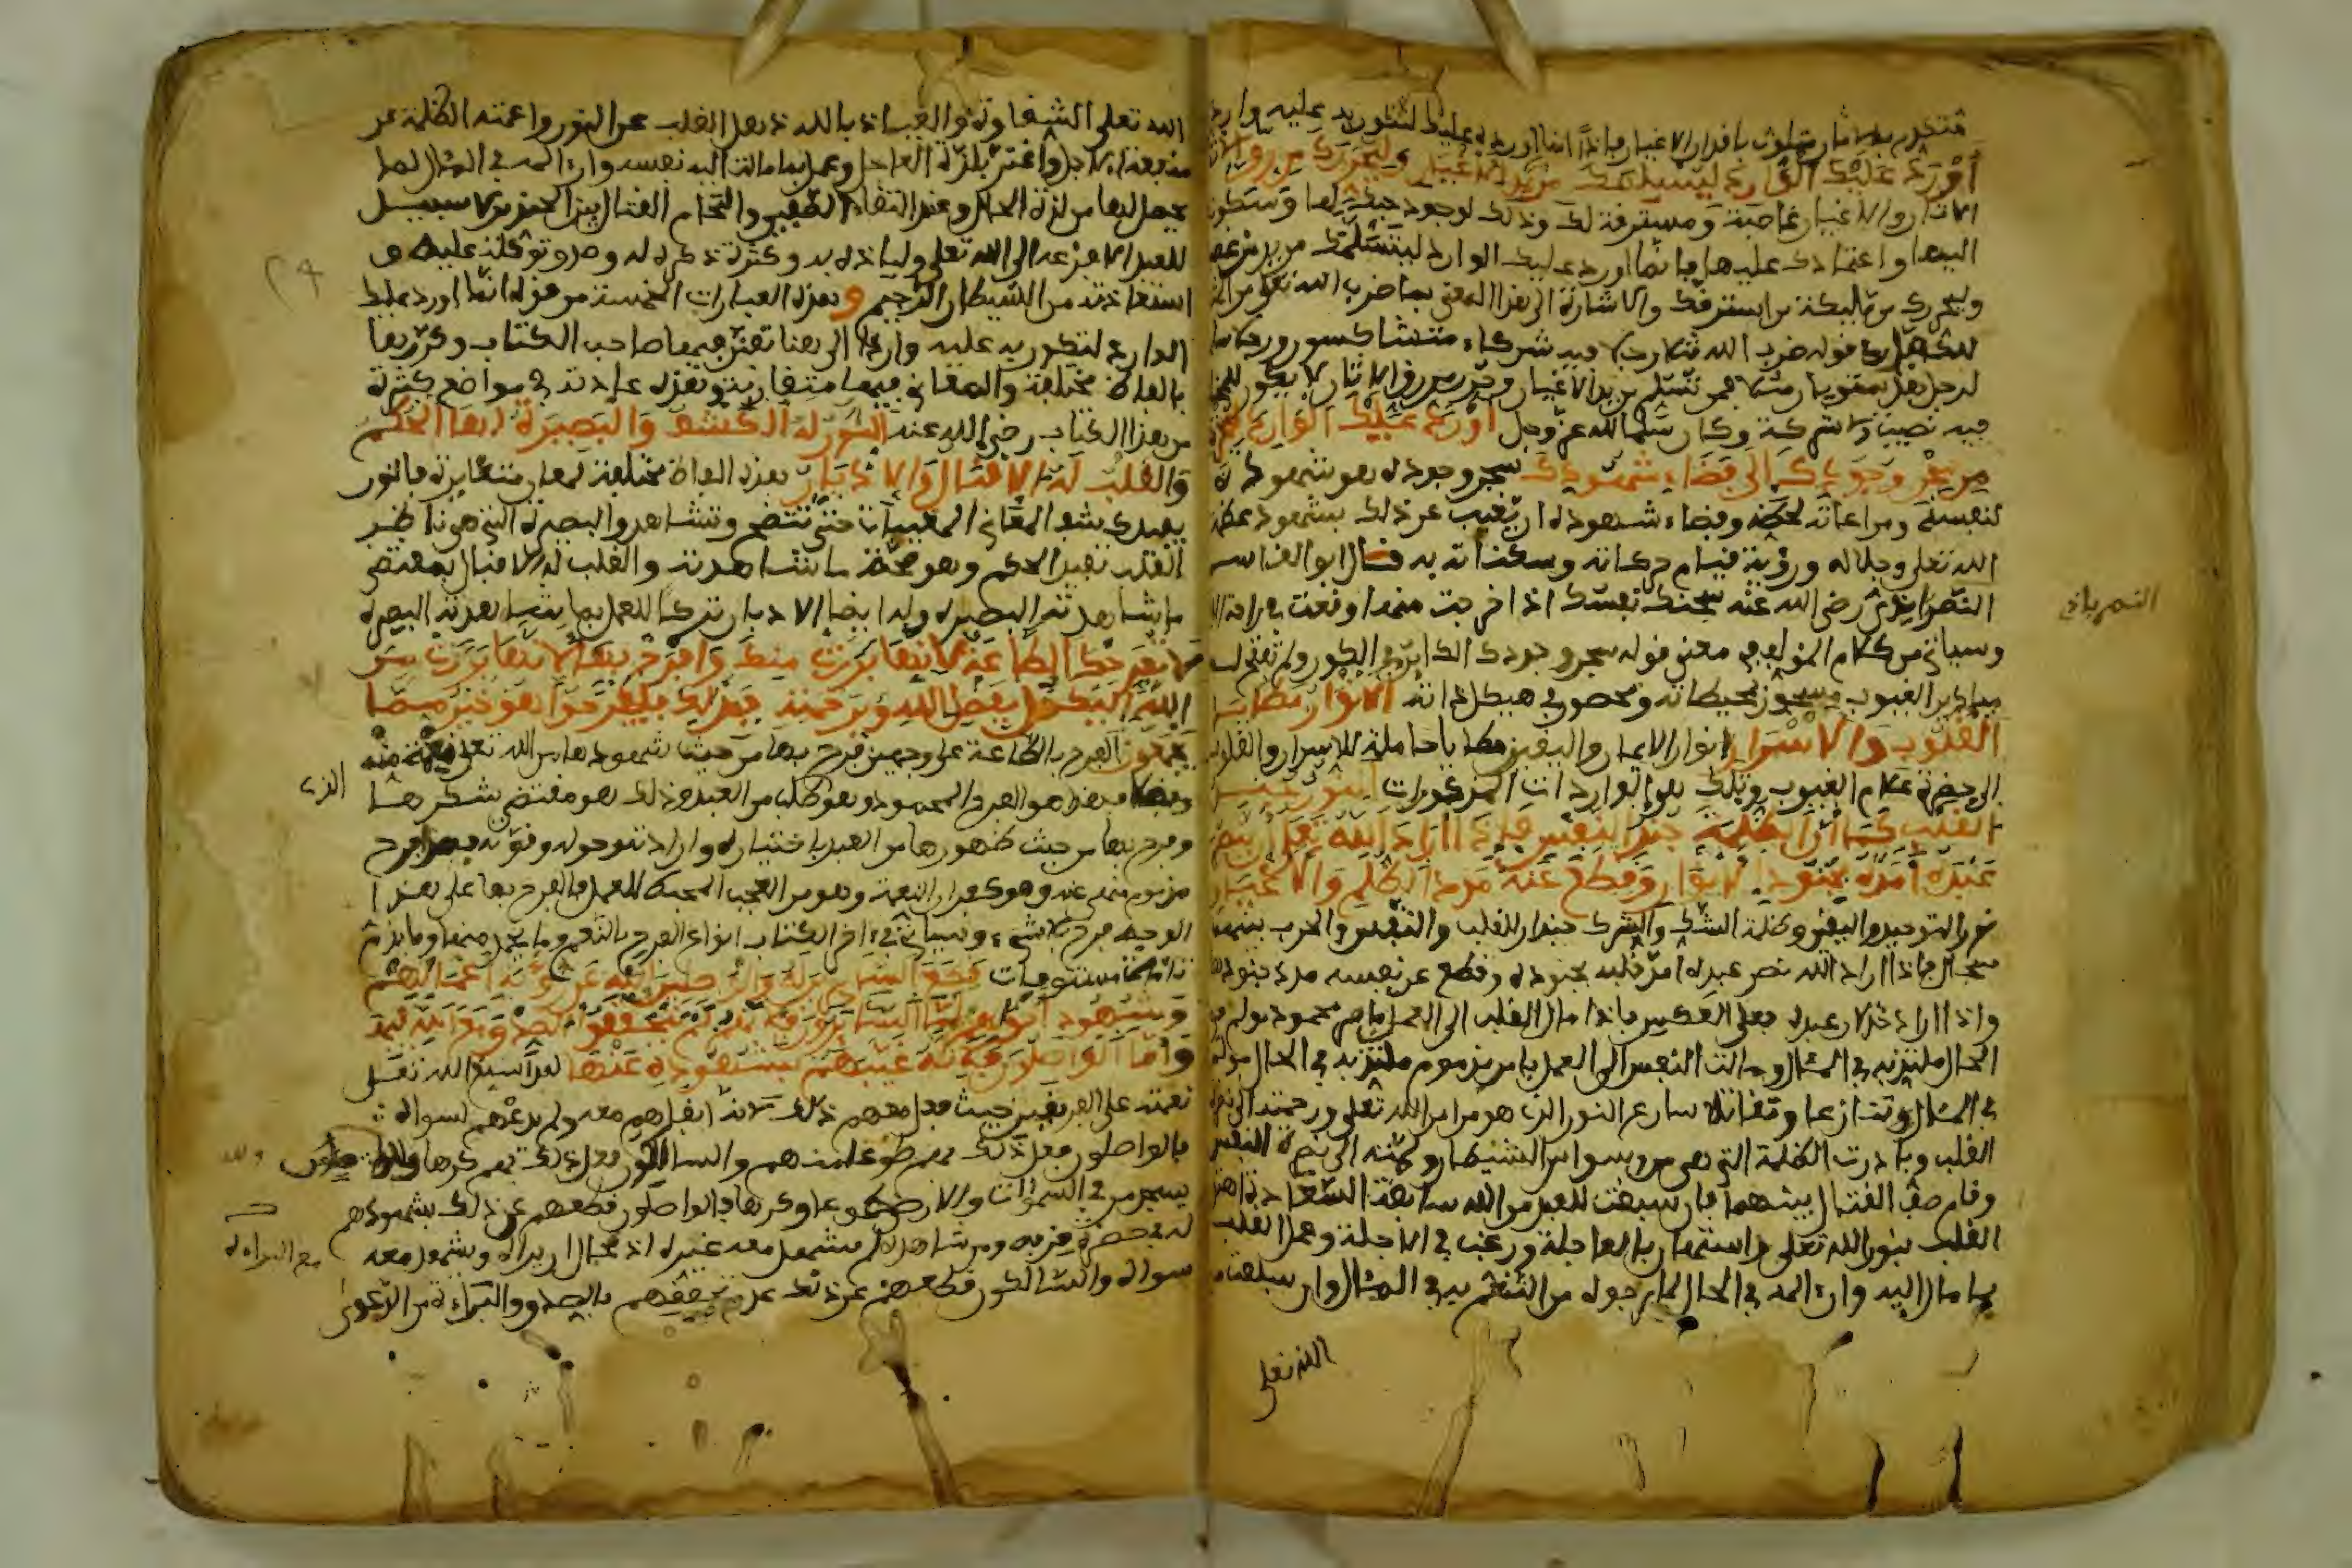 أورد عليك الوارد ليتسلمك من يد الاغيار وليحررك من رق الاثار
الاثار والاغيار غاصبة ومسترقة لك وذلك لوجود حبك لها وسكون
اليها واعتمادك عليها فانما اورد عليك الوارد ليتسلمك من يد من غصبك
وليحررك من ملكة من استرقك والاشارة الى هذا المعنى بما ضرب الله تعلى من
قوله ضرب الله مثلا رجلا فيه شركاء متشاكسون ورجلا سلما
لرجل هل يستويان مثلا فمن تسلم من يد الاغيار وتحرر من رق الاثار لا يكون للخلق
فيه نصيب ولا شركة وكان سلما لله عز وجل أورد عليك الوارد ليخرجك
من سجن وجودك الى فضاء شهودك سجن وجوده هو شهوده
لنفسه ومراعاته لحظه وفضاء شهوده ان يغيب عن ذلك بشهود عظمة
الله تعلى وجلاله ورؤية قيام حركاته وسكناته به قال ابو القاسم
النصرابادي رضي الله عنه سجنك نفسك اذا خرجت منها وقعت في راحة الابد
وسياتي من كلام المؤلف في معنى قوله سجن وجودك الكائن في الكون ولم تفتح له
ميادين الغيوب مسجون بمحيطاته ومحصور في هيكل ذاته الانوار مطايا
القلوب والاسرار انوار الايمان واليقين مطايا حاملة للاسرار والقلوب
الى حضرة علام الغيوب وتلك هي الواردات المذكورات النور جند
القلب كما أن الظلمة جند النفس فإذا أراد الله تعلى أن ينصر
عبده أمده بجنود الأنوار وقطع عنه مدد الظلم والأغيار
نور التوحيد واليقين وظلمة الشك والشرك جندان للقلب والنفس والحرب بينهما
سجال فاذا اراد الله نصر عبده امد قلبه بجنوده وقطع عن نفسه مدد جنودها
واذا اراد خذلان عبده فعلى العكس فاذا مال القلب الى العمل بامر محمود مولم في
الحال ملتذ به في المئال ومالت النفس الى العمل بامر مذموم ملتذ به في الحال مولم
في المئال وتنازعا وتقاتلا سارع النور الذي هو من امر الله تعلى ورحمته الى نصرة
القلب وبادرت الظلمة التي هي من وسواس الشيطان ولمته الى نصرة النفس
وقام صف القتال بينهما فان سبقت للعبد من الله سابقة السعادة اهتدى
القلب بنور الله تعلى واستهان بالعاجلة ورغب في الاجلة وعمل القلب
بما مال اليه وان ءالمه في الحال لما يرجوه من التنعم به في المئال وان سبقت له من
الله تعلى
النصرباذي
الله تعلى الشقاوة والعياذ بالله ذهل القلب عن النور واعمته الظلمة عن
منفعة الاجل واغتر بلذة العاجل وعمل بما مالت اليه نفسه وان ءالمه في المئال لما
يحصل لها من لذة الحال وعند التقاء الصفين والتحام القتال بين الجندين لا سبيل
للعبد الا فزعه الى الله تعلى ولياذه به وكثرة ذكره له وصدق توكله عليه و
استعاذته من الشيطان الرجيم وهذه العبارات الخمسة من قوله انما اورد عليك
الوارد لتكون به عليه واردا الى هنا تفنن فيها صاحب الكتاب وكررها
بالفاظ مختلفة والمعاني فيها متقاربة وهذه عادته في مواضع كثيرة
من هذا الكتاب رضي الله عنه النور له الكشف والبصيرة لها الحكم
والقلب له الاقبال والادبار هذه الفاظ مختلفة لمعان متغايرة فالنور
يفيد كشف المعاني المغيبات حتى تتضح وتشاهد والبصيرة التي هي ناظر
القلب تفيد الحكم وهو صحة ما شاهدته والقلب له الاقبال بمقتضى
ما شاهدته البصيرة وله ايضا الادبار تركا للعمل بما شاهدته البصيرة
لا تفرحك الطاعة لأنها برزت منك وافرح بها لأنها برزت من
الله اليك قل بفضل الله وبرحمته فبذلك فليفرحوا هو خير مما
يجمعون الفرح بالطاعة على وجهين فرح بها من حيث شهودها من الله تعلى نعمة منه
وفضلا فهذا هو الفرح المحمود وهو طلب من العبد وذلك هو مقتضى شكرها
وفرح بها من حيث ظهورها من العبد باختياره وارادته وحوله وقوته فهذا فرح
مذموم منهي عنه وهو كفران النعمة وهو من العجب المحبط للعمل فالفرح بها على هذا
الوجه فرح بلا شيء وسياتي في ءاخر الكتاب انواع الفرح بالنعم وما يحمد منها وما يذم
قطع السائرين له والواصلين إليه عن رؤية أعمالهم
وشهود أحوالهم أما السائرون فلأنهم لم يتحققوا الصدق مع الله فيها
وأما الواصلون فلأنه غيبهم بشهوده عنها لقد اسبغ الله تعلى
نعمته على الفريقين حيث فعل معهم ذلك لانه ابقاهم معه ولم يدعهم لسواه
فالواصلون فعل ذلك بهم طوعا منهم والسالكون فعل ذلك بهم كرها ولله
يسجد من في السموات والارض طوعا وكرها فالواصلون قطعهم عن ذلك بشهودهم
له في حضرة قربه ومن شاهده لم يشهد معه غيره اذ محال ان يراه ويشهد معه
سواه والسالكون قطعهم عن ذلك عدم تحققهم بالصدق والبراءة من الدعوى
الذي